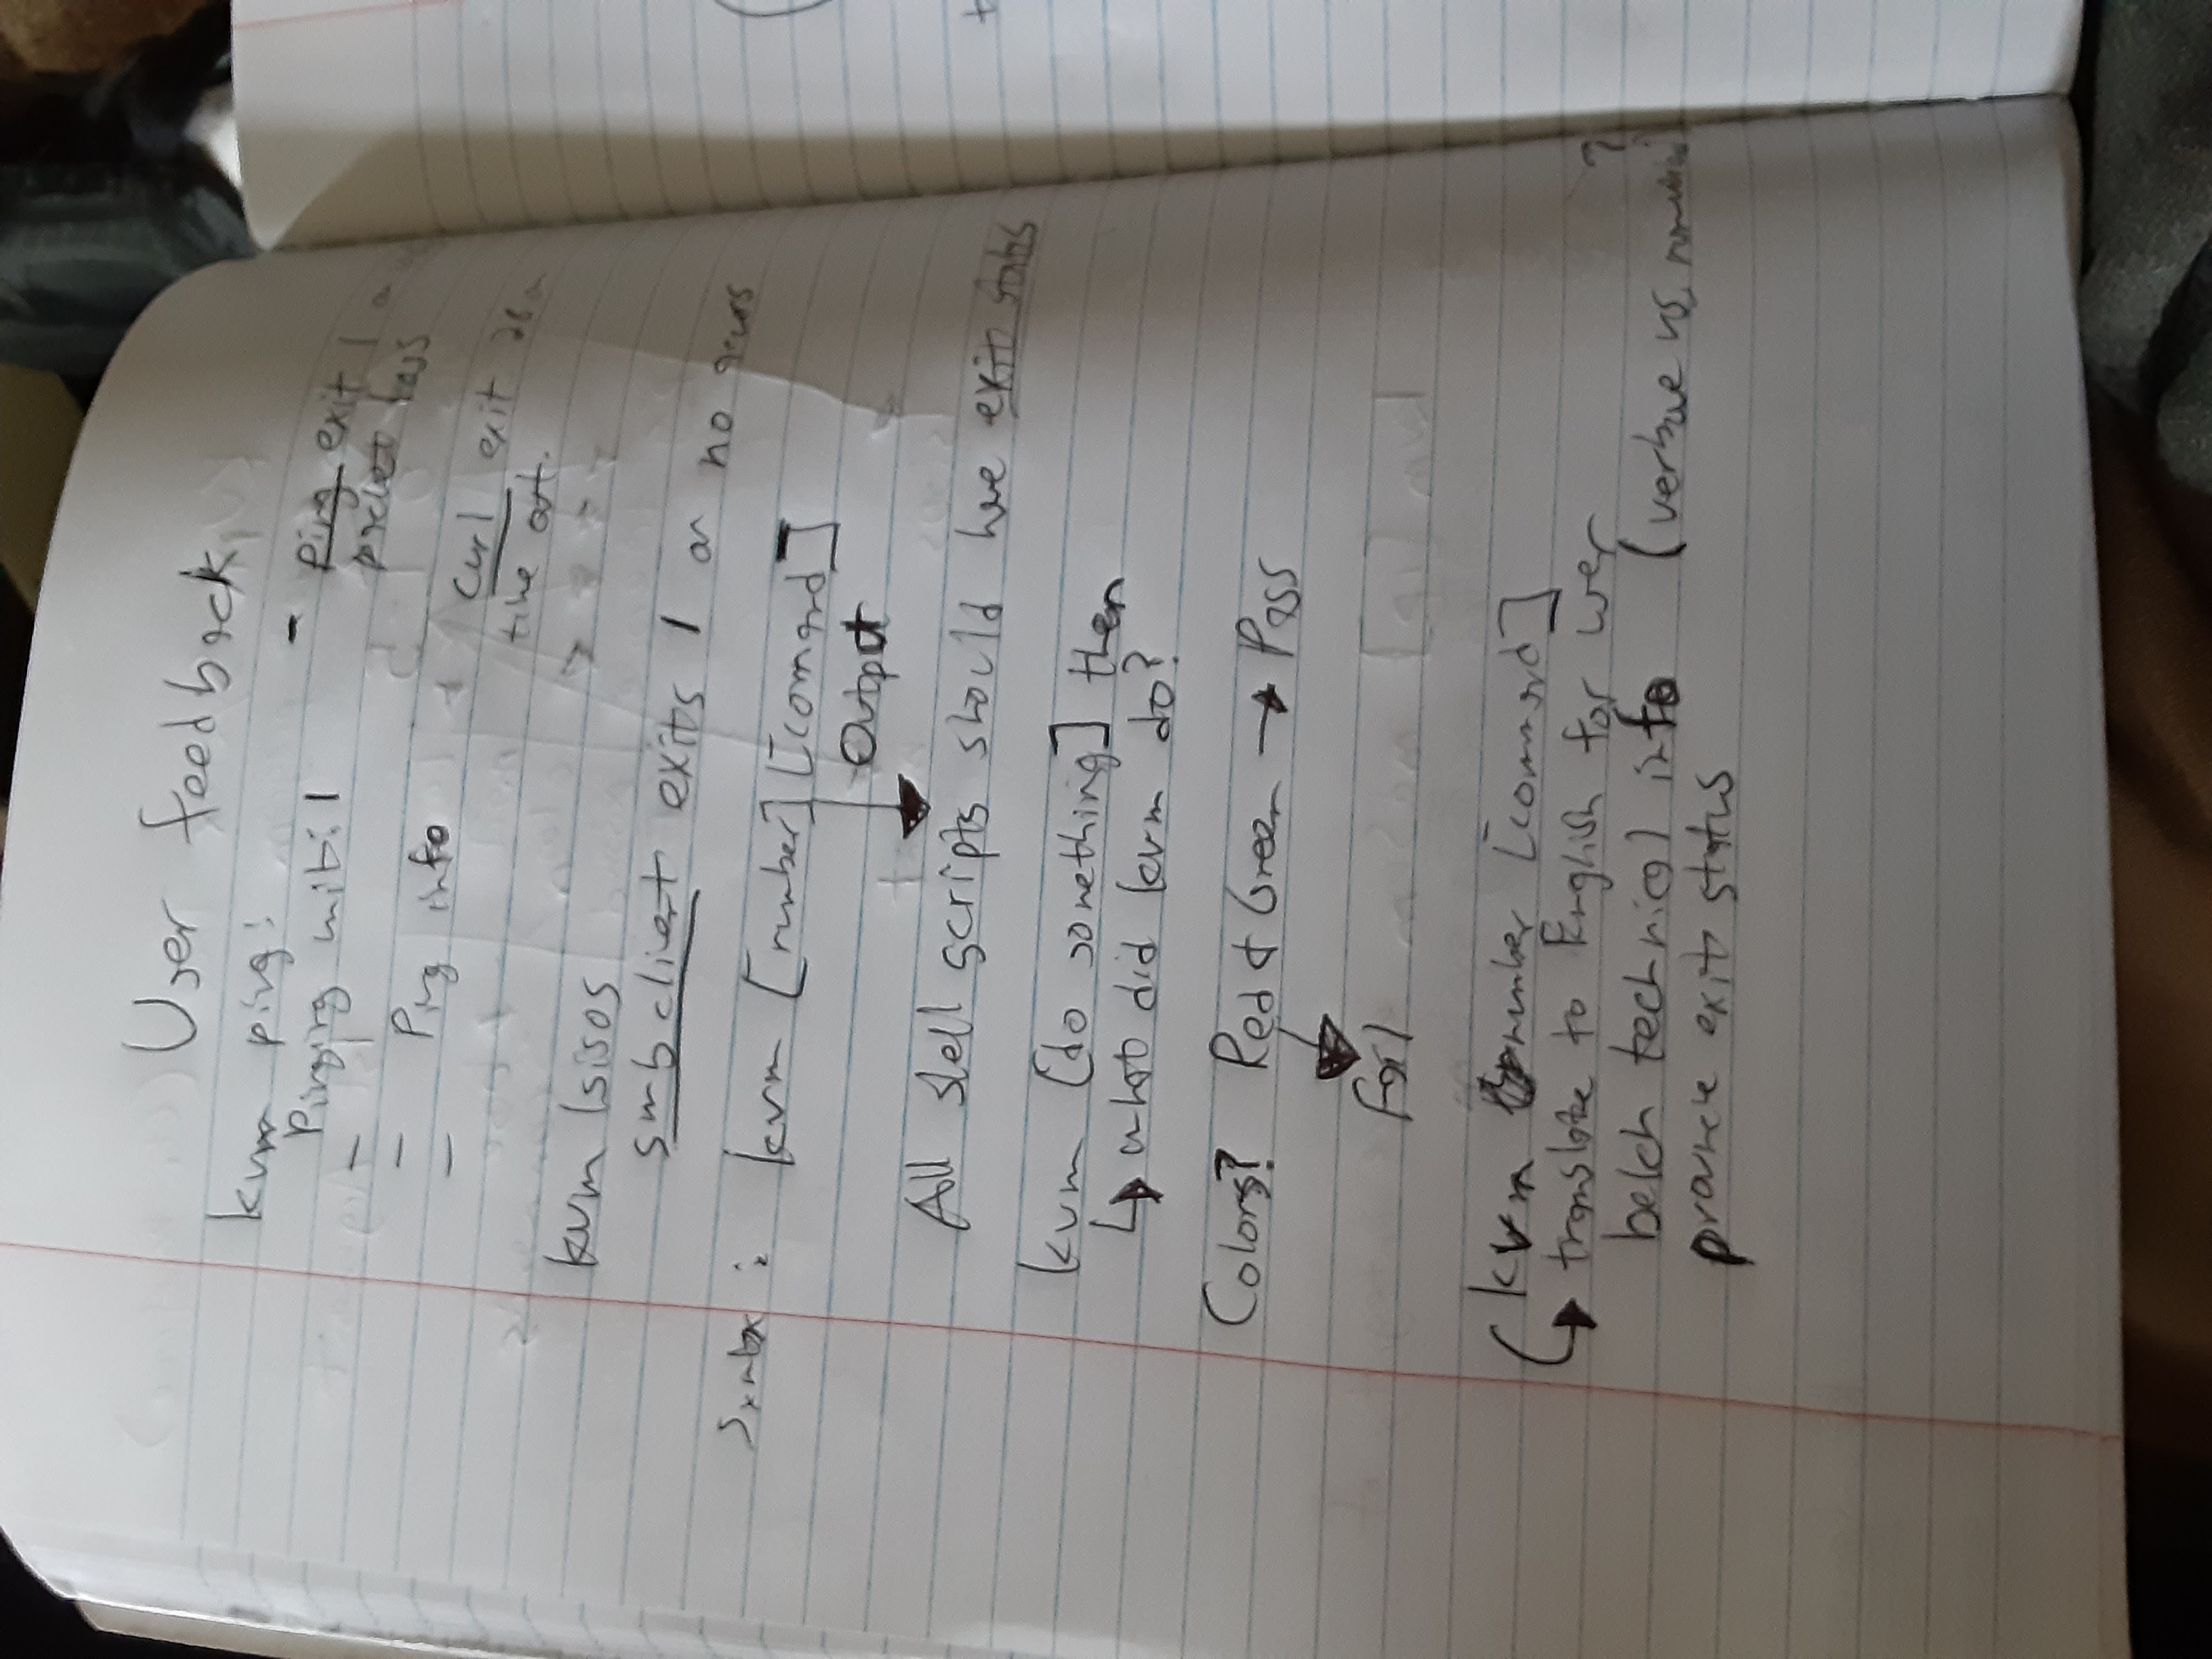 User feedback
kvm ping:
Pinging
- ping exit 1
packet loss
-
- Ping info
-
+ curl exit 28 on
time out.
kvm lsisos
smbclient exits 1 on no
Syntax : kvm [number] [comand]
Output
All shell scripts should have exit status
kvm [do something] then
what did kvm do?
Colors? Red & Green → Pass
Fail
kvm number [command]
translate to English for user
belch technical info (verbose vs. ?
exit status